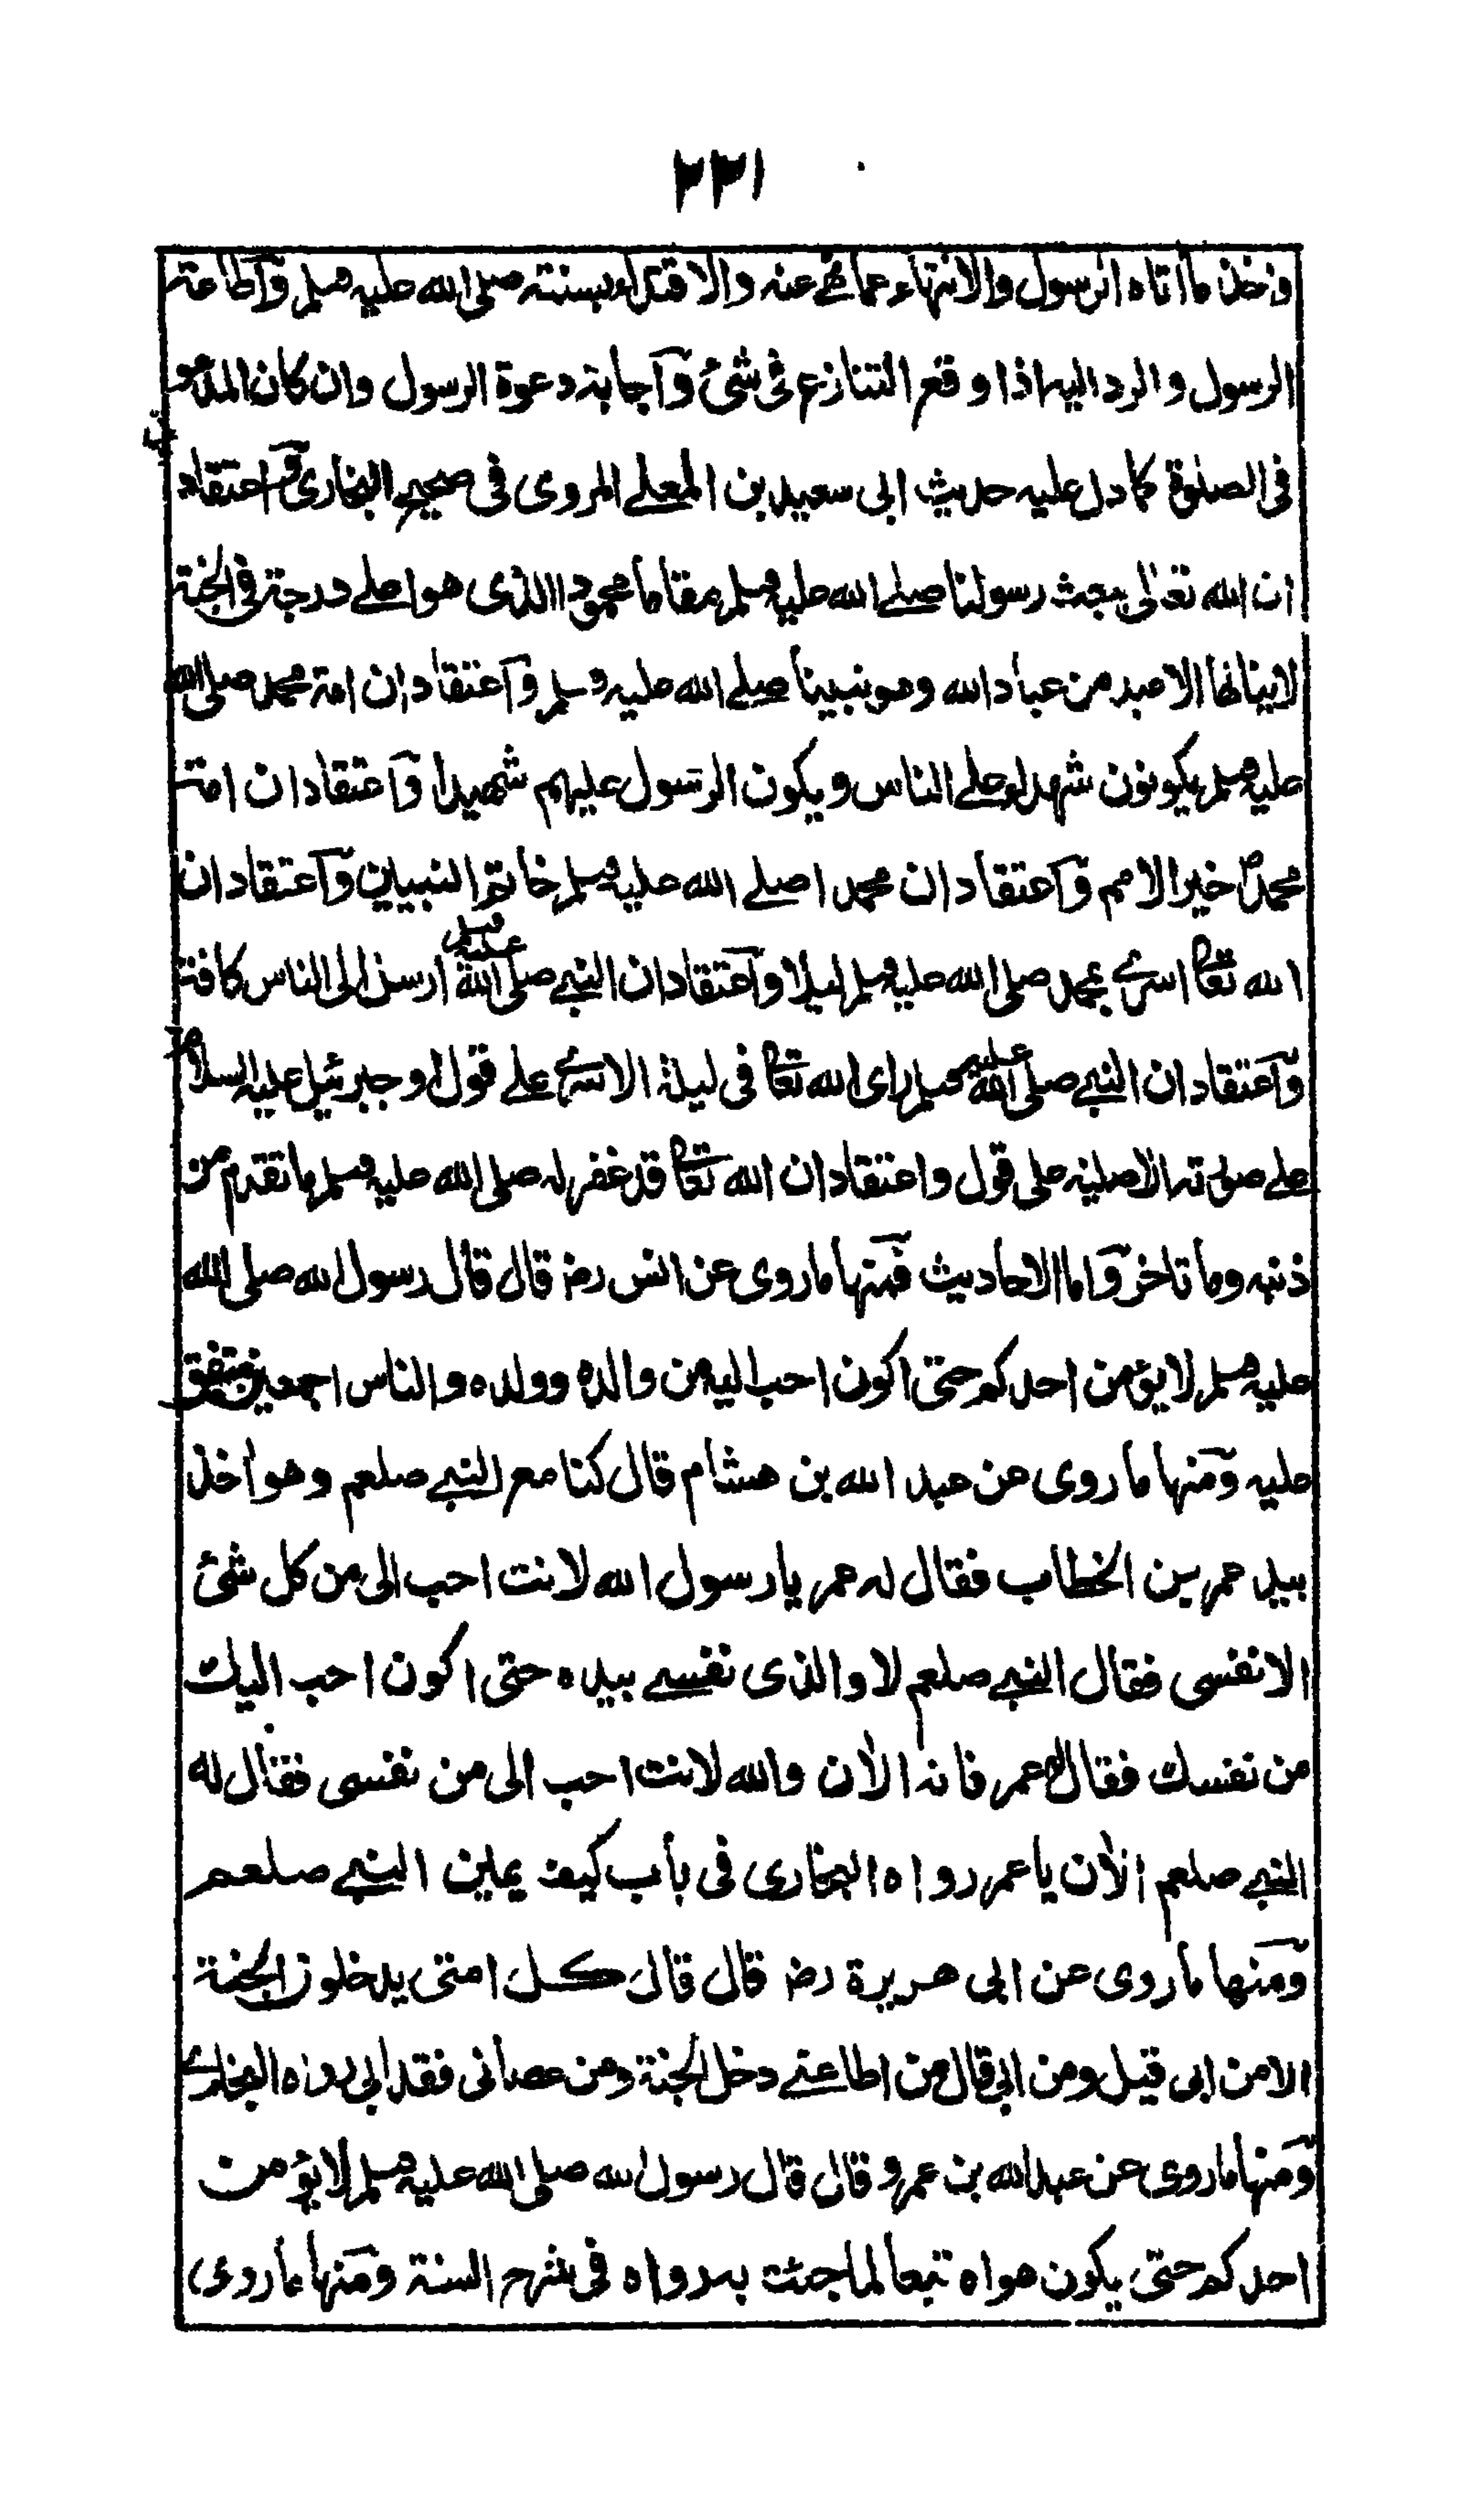 ٢٢١
وخذ ما اتاه الرسول والانتهاء عما نهى عنه والاقتداء بسنته صلى الله عليه وسلم وآطاعة
الرسول والرد اليه اذا وقع التنازع فى شئ وآجابة دعوة الرسول وان كان المدعو
فى الصلوة كما دل عليه حديث ابى سعيد بن المعلے المروى فى صحيح البخارى وآعتقاد
ان الله تعالى يبعث رسولنا صلے الله عليه وسلم مقاما محمودا الذى هو اعلے درجة فى الجنة
لا ينالها الا عبد من عباد الله وهو نبينا صلے الله عليه وسلم وآعتقاد ان امة محمد صلى الله
عليه وسلم يكونون شهداء على الناس ويكون الرسول عليهم شهيدا وآعتقاد ان امة
محمد خير الامم وآعتقاد ان محمدا صلے الله عليه وسلم خاتم النبيين وآعتقاد ان
الله تعا اسرے بمحمد صلى الله عليه وسلم ليلا وآعتقاد ان النبے صلى الله عليه وسلم ارسل الى الناس كافة
وآعتقاد ان النبے صلى الله عليه وسلم راى الله تعا فى ليلة الاسرے علے قول او جبرئيل عليه السلام
علے صورته الاصلية على قول واعتقاد ان الله تعا قد غفر له صلى الله عليه وسلم ما تقدم من
ذنبه وما تاخر وآما الاحاديث فمنها ما روى عن انس رضـ قال قال رسول الله صلى الله
عليه وسلم لا يؤمن احدكم حتى اكون احب اليه من والده وولده والناس اجمعين متفق
عليه ومنها ما روى عن عبد الله بن هشام قال كنا مع النبے صلعم وهو اخذ
بيد عمر بن الخطاب فقال له عمر يا رسول الله لانت احب الى من كل شئ
الا نفسى فقال النبے صلعم لا والذى نفسے بيده حتى اكون احب اليك
من نفسك فقال له عمر فانه الأن والله لانت احب الى من نفسى فقال له
النبے صلعم الأن يا عمر رواه البخارى فى باب كيف يمين النبے صلعم
ومنها ما روى عن ابى هريرة رضـ قال قال كل امتى يدخلون الجنة
الا من ابى قيل ومن ابى قال من اطاعنے دخل الجنة ومن عصانى فقد ابى رواه البخارے
ومنها ما روى عن عبد الله بن عمرو قال قال رسول الله صلى الله عليه وسلم لا يؤمن
احدكم حتى يكون هواه تبعا لما جئت به رواه فى شرح السنة ومنها ما روى